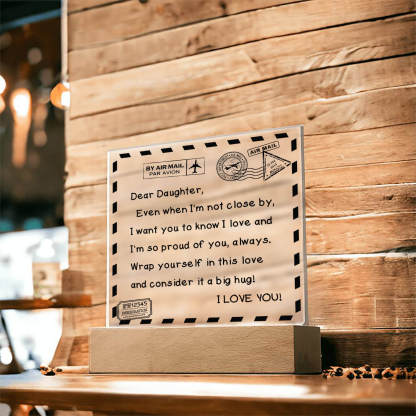 BY AIR MAIL
PAR AVION
AIR MAIL
Dear Daughter,
Even when I'm not close by,
I want you to know I love and
I'm so proud of you, always.
Wrap yourself in this love
and consider it a big hug!
I LOVE YOU!
12345